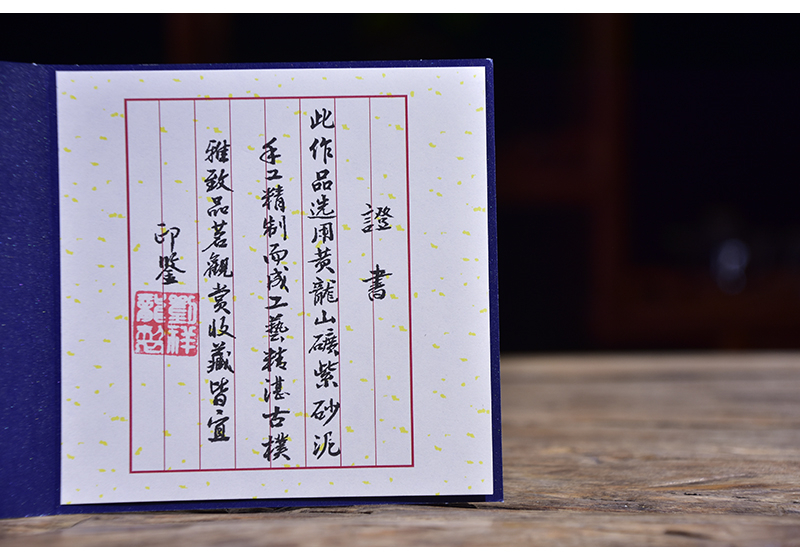 證書
此作品选用黄龍山礦紫砂泥
手工精制而成工藝精湛古樸
雅致品茗觀赏收藏皆宜
印鑒